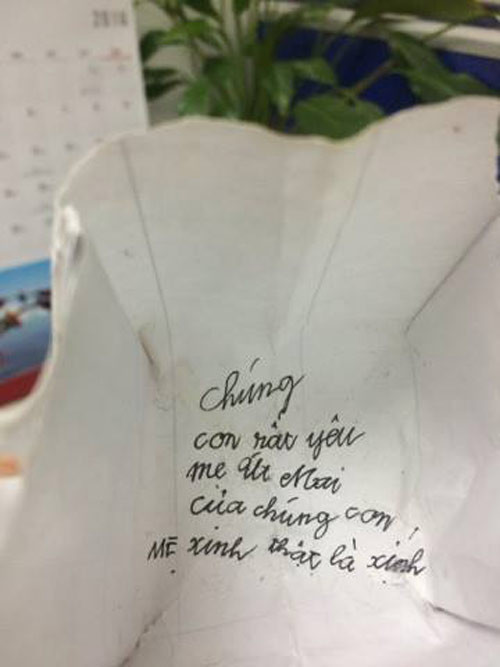 2016
chúng
con rất yêu
mẹ Út Mai
của chúng con !
MẸ xinh thật là xinh